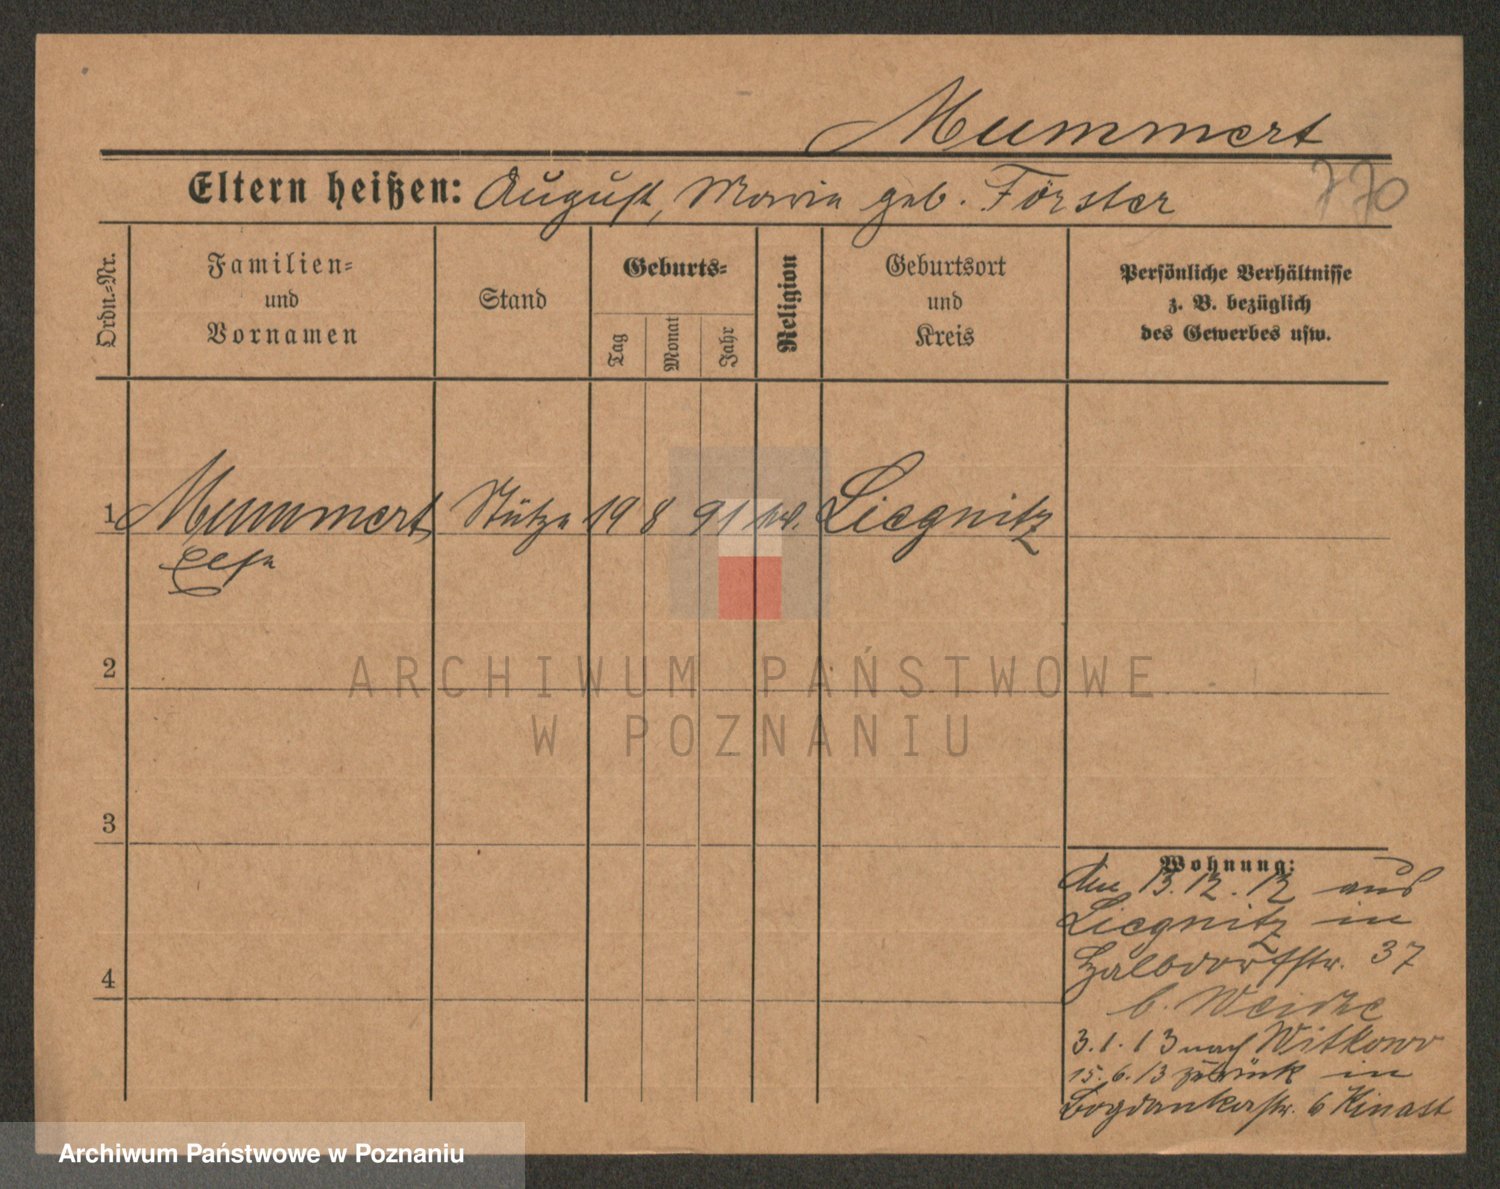 Mummert
Eltern heißen: August, Marie geb. Förster
770
Ordn.-Nr.
Familien-
und
Vornamen
Stand
Geburts-
Tag
Monat
Jahr
Religion
Geburtsort
und
Kreis
Persönliche Verhältnisse
z. B. bezüglich
des Gewerbes usw.
1 Mummert Stütze 19 8 91 Liegnitz
Else
2
3
4
Wohnung:
den 13.12.12 aus
Liegnitz in
Halbdorfstr. 37
b.
3.1.13 nach Witkowo
15.6.13 zurück in
Bogdankastr. 6 Kinast
ARCHIWUM PAŃSTWOWE
W POZNANIU
Archiwum Państwowe w Poznaniu